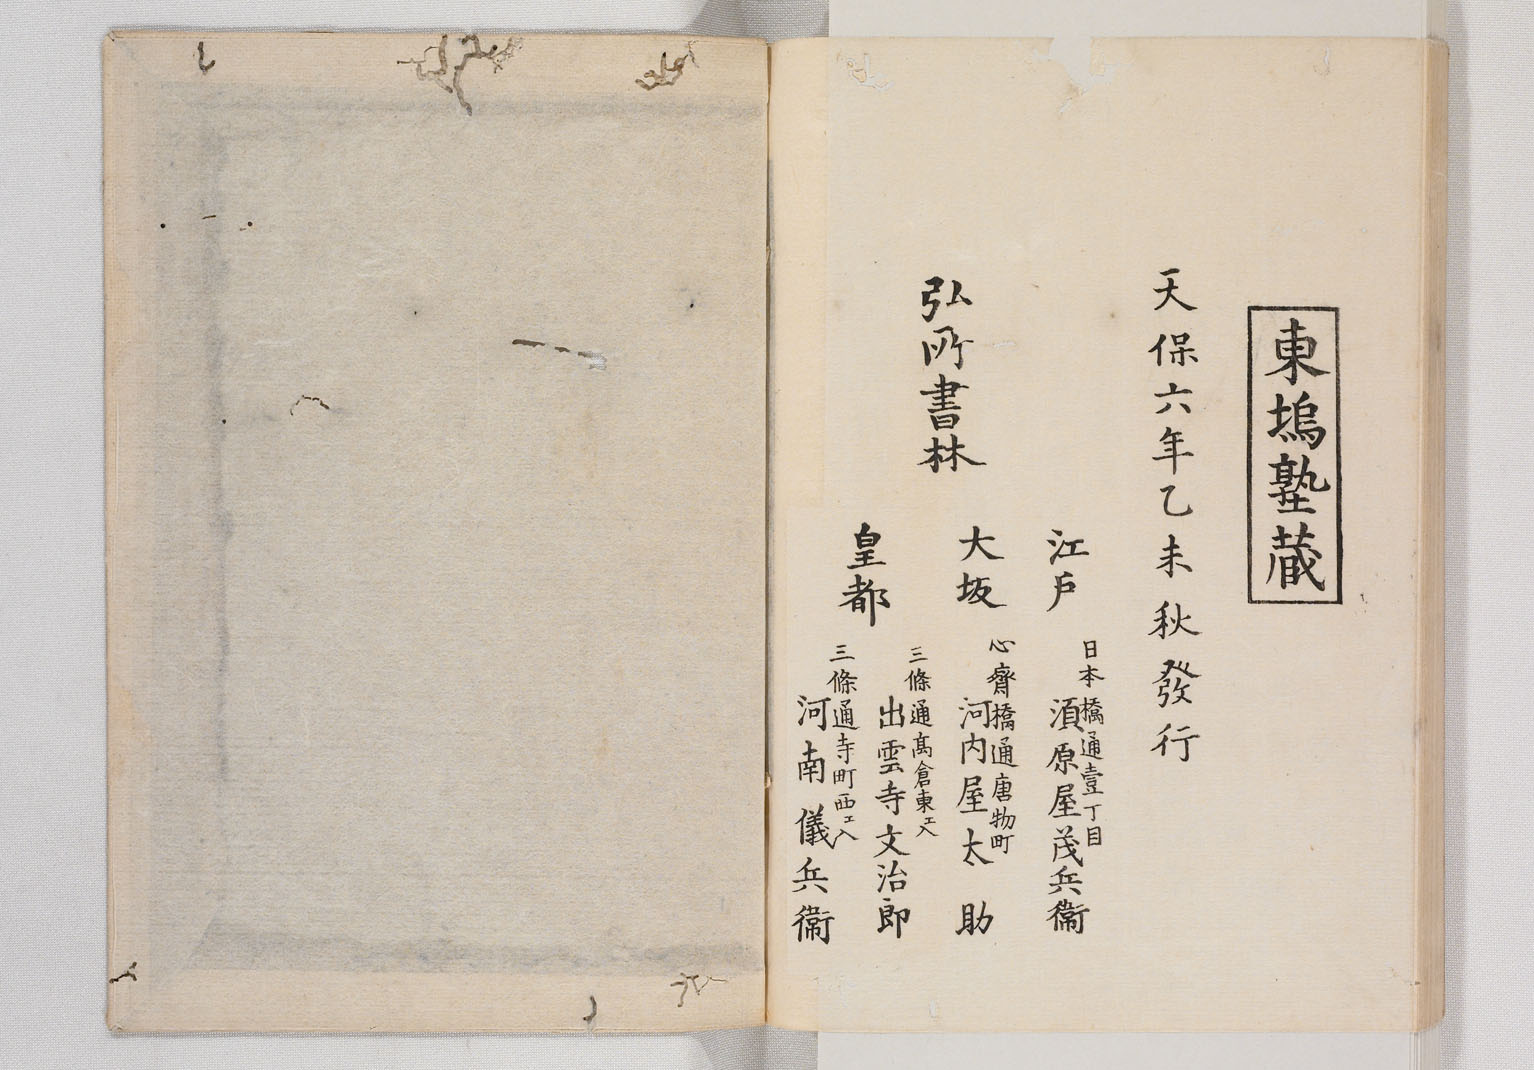 東塢塾蔵
天保六年乙未秋發行
弘所書林
江戸
日本橋通壹丁目
須原屋茂兵衞
大坂
心齋橋通唐物町
河内屋太助
皇都
三條通高倉東エ入
出雲寺文治郎
三條通寺町西エ入
河南儀兵衞